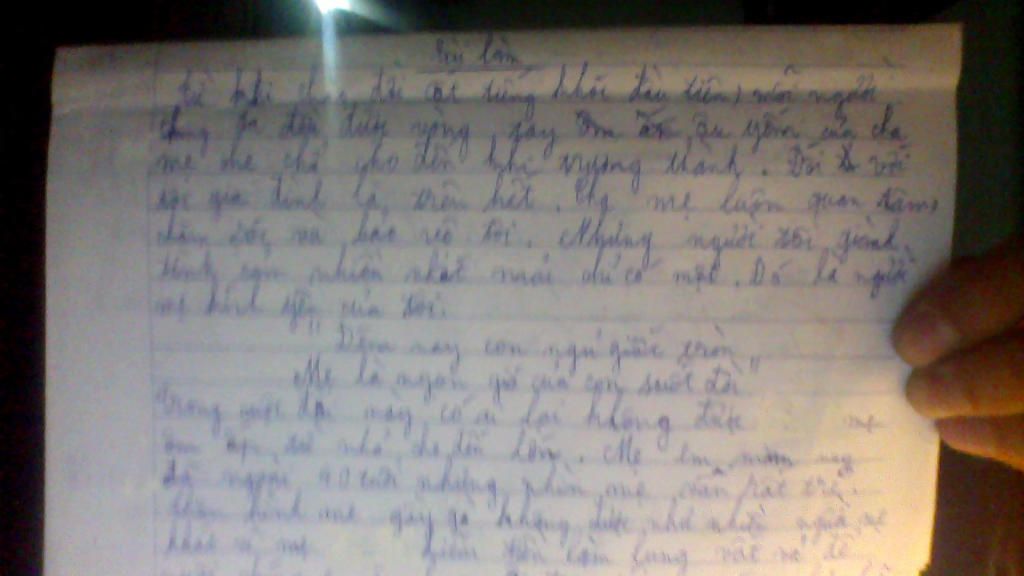 Bài làm
Từ khi chào đời cất tiếng khóc đầu tiên, mỗi người
chúng ta đều được vòng tay ôm ấp âu yếm của cha
mẹ che chở cho đến khi trưởng thành. Đối với
gia đình là trên hết. Cha mẹ luôn quan tâm,
chăm sóc và bảo vệ tôi. Nhưng người tôi giành
tình cảm nhiều nhất mà chỉ có một. Đó là người
mẹ kính yêu của tôi.
"Đêm nay con ngủ giấc tròn
Mẹ là ngọn gió của con suốt đời"
Trong cuộc đời này có ai lại không được mẹ
ôm ấp từ nhỏ cho đến lớn. Mẹ em năm nay
đã ngoài 40 tuổi nhưng nhìn mẹ vẫn rất trẻ.
Thân hình mẹ gầy gò không được như nhiều người mẹ
khác vì mẹ kiếm tiền làm lụng vất vả để